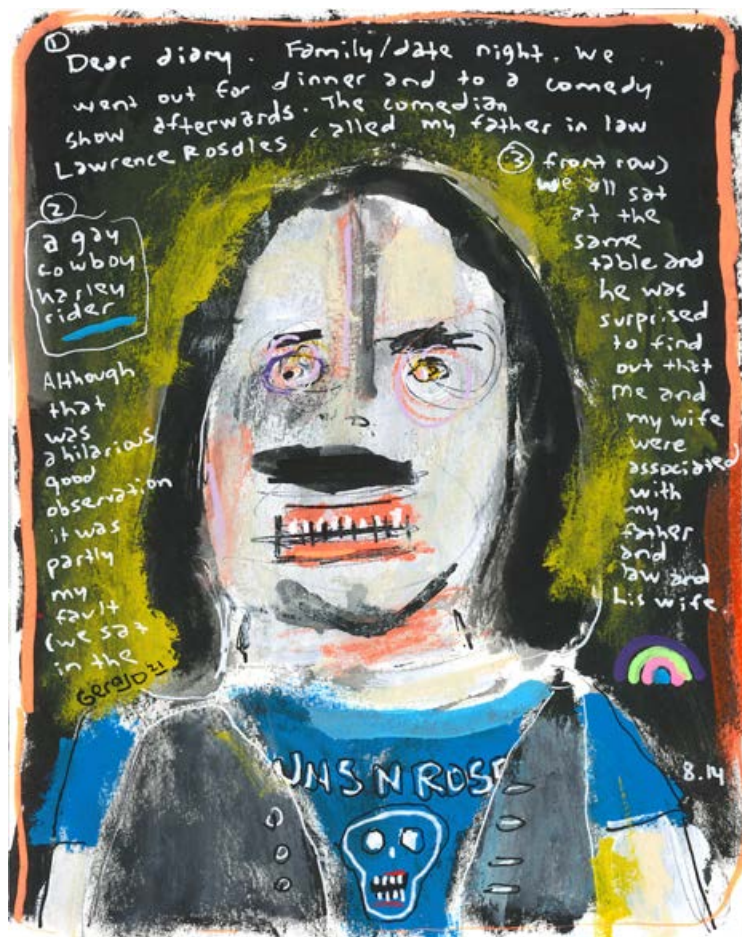 ①
Dear diary. Family/date night. We
went out for dinner and to a comedy
show afterwards. The comedian
called my father in law
Lawrence Rosales
②
a gay
cowboy
harley
rider
Although
that
was
a hilarious
good
observation
it was
partly
my
fault
(we sat
in the
③ front row)
we all sat
at the
same
table and
he was
surprised
to find
out that
me and
my wife
were
associated
with
my
father
and
law and
his wife.
8.14
UNS N ROSE